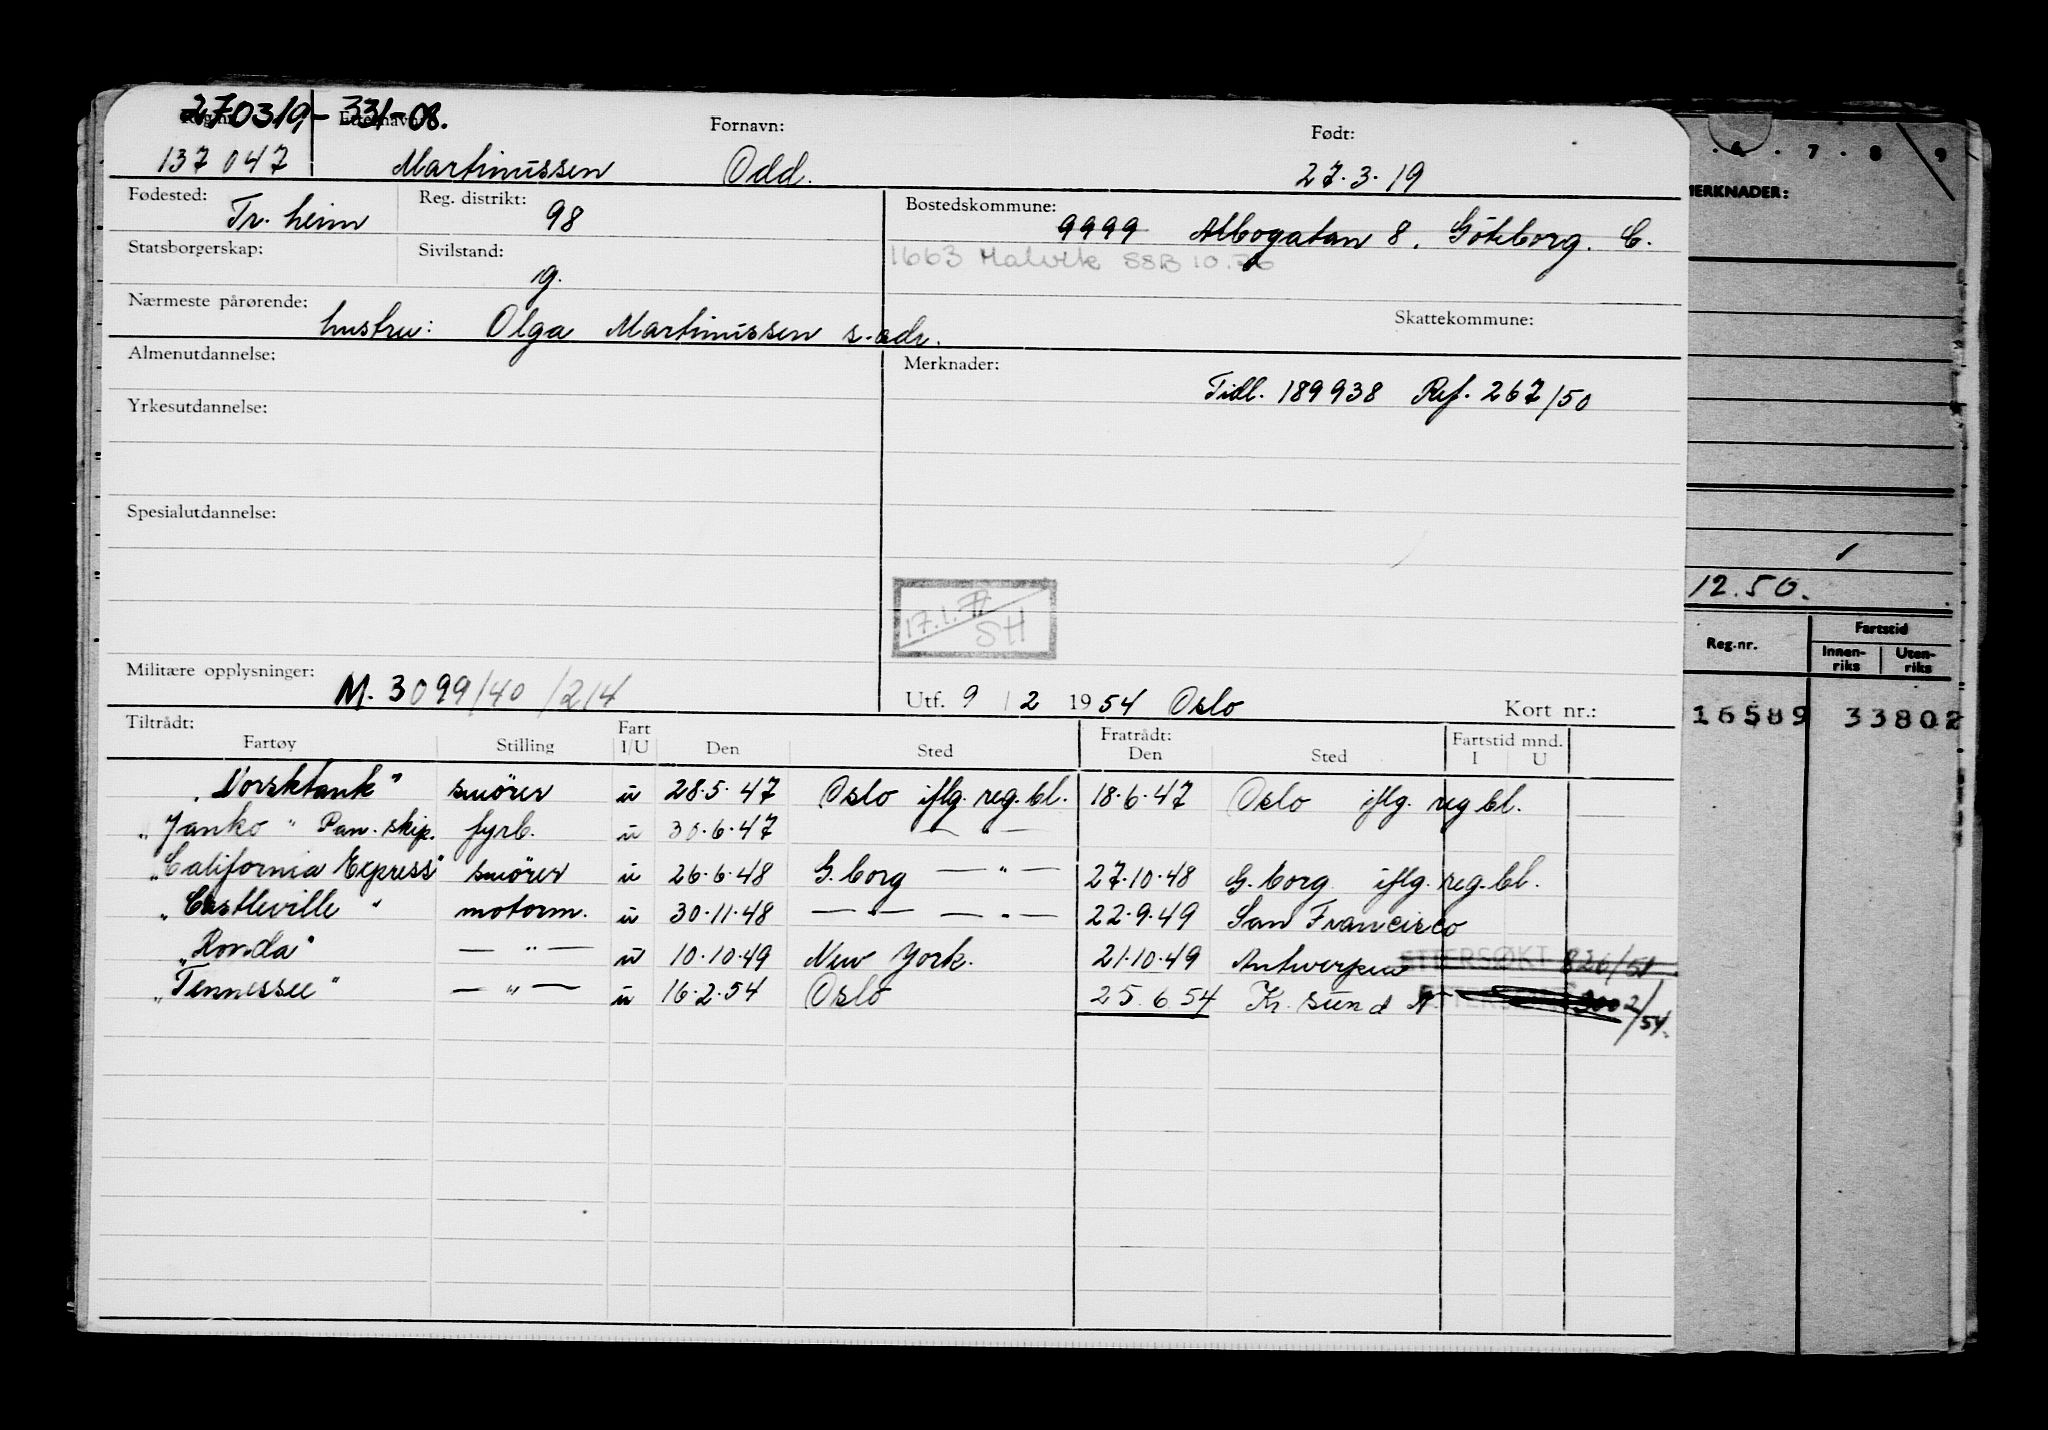 270319-331-08.
Reg.nr. Etternavn: Fornavn: Født:
137 047 Martinussen Odd. 27.3.19
Fødested: Tr.heim Reg. distrikt: 98 Bostedskommune: 9999 Albogatan 8, Göteborg. C.
Statsborgerskap: Sivilstand: g. 1663 Malvik SSB 10.76
Nærmeste pårørende: hustru: Olga Martinussen s. adr. Skattekommune:
Almenutdannelse: Merknader:
Tidl. 189938 Ref. 267/50
Yrkesutdannelse:
Spesialutdannelse:
17.1.77 SH
Militære opplysninger: M. 3099/40/214 Utf. 9/2 1954 Oslo Kort nr.:
Tiltrådt: Fart Fratrådt: Fartstid mnd.
Fartøy Stilling I/U Den Sted Den Sted I U
"Norsktank" smörer u 28.5.47 Oslo iflg. reg. bl. 18.6.47 Oslo iflg. reg bl.
"Janko" Pan. skip. fyrb. u 30.6.47 — " —
"California Express" smörer u 26.6.48 G.borg — " — 27.10.48 G.borg iflg. reg. bl.
"Castleville" motorm. u 30.11.48 — " — — " — 22.9.49 San Francisco
"Ronda" — " — u 10.10.49 New York. 21.10.49 Antwerpen ETTERSØKT 826/51
"Tennessee" — " — u 16.2.54 Oslo 25.6.54 Kr. sund N. /54.
6 . 7 . 8 9
MERKNADER:
12.50.
Reg.nr. Fartstid
Innenriks Utenriks
16589 33802